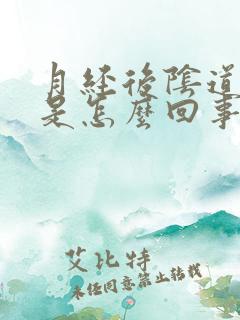 月經後陰道
是怎麼回事
艾比特
未經同意禁止轉載